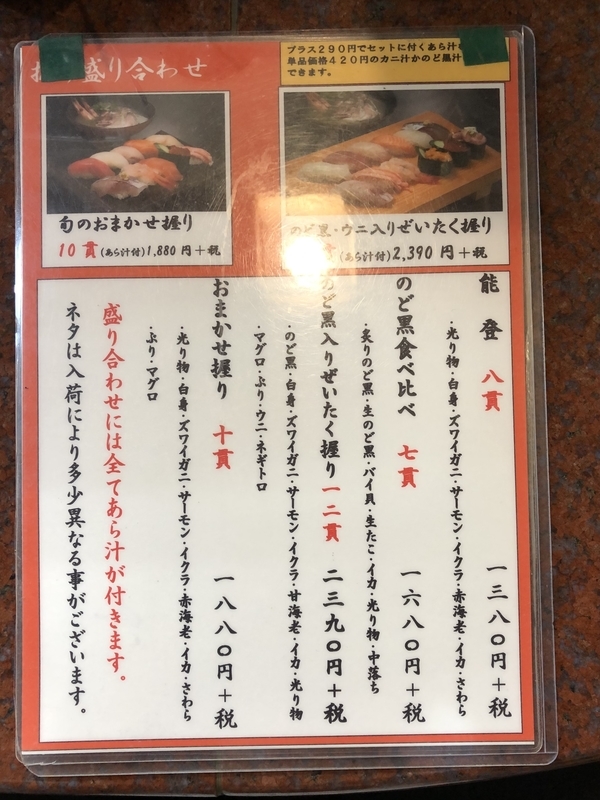 盛り合わせ
プラス290円でセットに付くあら汁を
単品価格420円のカニ汁かのど黒汁
できます。
旬のおまかせ握り
10貫(あら汁付)1,880円+税
のど黒・ウニ入りぜいたく握り
(あら汁付)2,390円+税
能登 八貫 一三八〇円+税
・光り物・白身・ズワイガニ・サーモン・イクラ・赤海老・イカ・さわら
のど黒食べ比べ 七貫 一六八〇円+税
・炙りのど黒・生のど黒・バイ貝・生たこ・イカ・光り物・中落ち
のど黒入りぜいたく握り 一二貫 二三九〇円+税
・のど黒・白身・ズワイガニ・サーモン・イクラ・甘海老・イカ・光り物
・マグロ・ぶり・ウニ・ネギトロ
おまかせ握り 十貫 一八八〇円+税
・光り物・白身・ズワイガニ・サーモン・イクラ・赤海老・イカ・さわら
・ぶり・マグロ
盛り合わせには全てあら汁が付きます。
ネタは入荷により多少異なる事がございます。